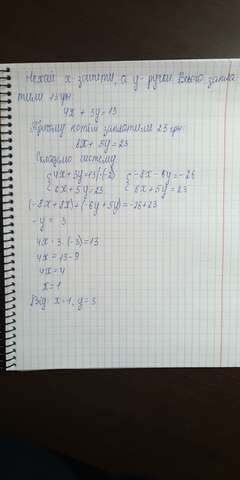 Нехай x зошити, а y- ручки. Всього запла
тили 13 грн:
4x + 3y = 13
Причому потім заплатили 23 грн:
8x + 5y = 23
Складемо систему
{4x + 3y = 13 |·(-2) {-8x - 6y = -26
{8x + 5y = 23 {8x + 5y = 23
(-8x + 8x) + (-6y + 5y) = -26 + 23
-y = 3
4x · 3 · (-3) = 13
4x = 13 - 9
4x = 4
x = 1
Від: x = 1, y = 3